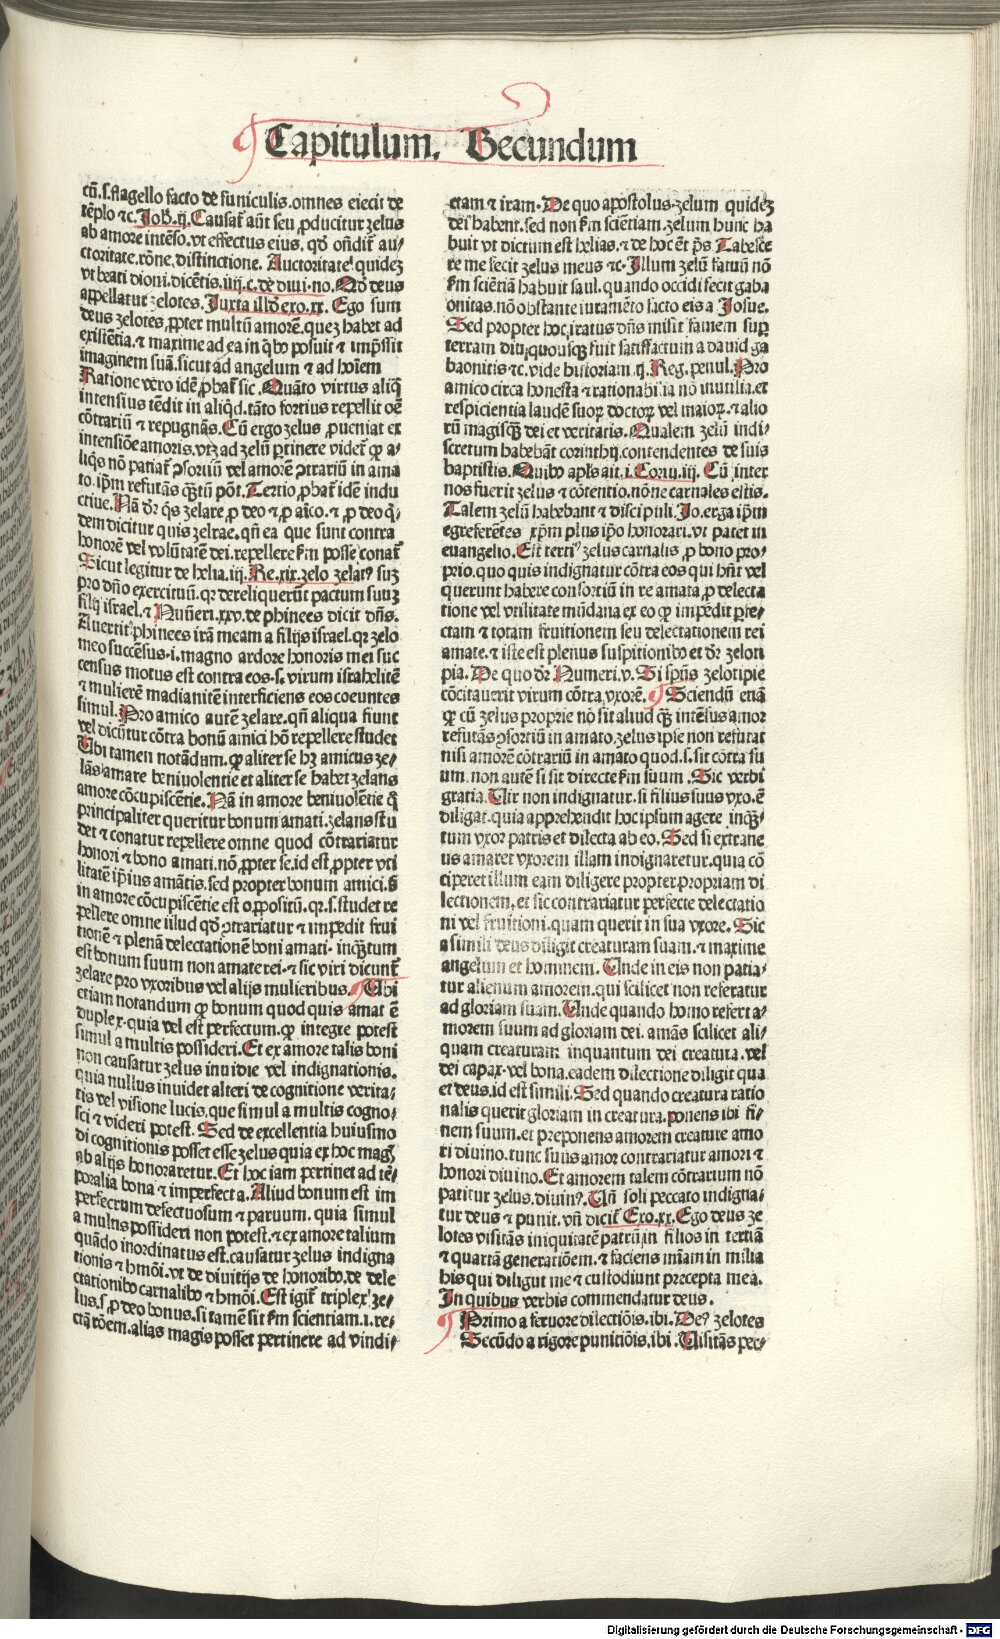 Capitulum. Secundum
cū.s.flagello facto de funiculis.omnes eiecit de
tēplo ⁊c. Joh̄.ij. Causat̄ aūt seu ꝓducitur zelus
ab amore intēso.vt effectus eius, qd̄ oñdit̄ au/
ctoritate.rōne.distinctione. Auctoritate quidez
vt beati dioni.dicētis.iiij.c.de diui.no. Qd̄ deus
appellatur zelotes. Juxta illd̄ exo.xx. Ego sum
deus zelotes, ꝓpter multū amorē.quez habet ad
existētia.⁊ maxime ad ea in q̄bo posuit ⁊ imp̄ssit
imaginem suā.sicut ad angelum ⁊ ad hoīem
Ratione vero idē ꝓbat̄ sic. Quāto virtus aliq̄
intensius tēdit in aliq̄d.tāto fortius repellit oē
cōtrariū ⁊ repugnās. Cū ergo zelus ꝓueniat ex
intensiōe amoris.vtꝫ ad zelū ꝑtinere videt̄ ꝙ a/
liq̄s nō patiat̄ ꝯsortiū vel amorē ꝯtrariū in ama
to.ip̄m refutās q̄ꝫtū pōt. Tertio ꝓbat̄ idē indu
ctiue. Nā dr̄ q̄s zelare ꝓ deo ⁊ ꝓ aīco.⁊ ꝓ deo q̄/
dem dicitur quis zelrae.qn̄ ea que sunt contra
honorē vel volūtatē dei.repellere ẜm posse conat̄
Sicut legitur de helia.iij. Re.xix.zelo zelatꝰ suꝫ
pro dño exercituū.qr dereliquerūt pactum suuꝫ
filij israel.⁊ Nuūeri.xxv.de phinees dicit dñs.
Auertit phinees irā meam a filijs israel.qr zelo
meo succēsus.i.magno ardore honoris mei suc
census motus est contra eos.s.virum israhelitē
⁊ mulierē madianitē interficiens eos coeuntes
simul. Pro amico autē zelare.qn̄ aliqua fiunt
vel dicūtur cōtra bonū amici hō repellere studet
Ubi tamen notādum.ꝙ aliter se hꝫ amicus ze/
lās amare beniuolentie et aliter se habet zelans
amore cōcupiscētie. Nā in amore beniuolētie q̄
principaliter queritur bonum amati.zelans stu
det ⁊ conatur repellere omne quod cōtrariatur
honori ⁊ bono amati.nō ꝓpter se.id est ꝓpter vti
litatē ip̄ius amātis.sed propter bonum amici.S
in amore cōcupiscētie est oppositū.qr.s.studet re
pellere omne illud qd̄ ꝯtrariatur ⁊ impedit frui
tionē ⁊ plenā delectationē boni amati.inq̄ꝫtum
est bonum suum non amate rei.⁊ sic viri dicunt̄
zelare pro vxoribus vel alijs mulieribus. Ubi
etiam notandum ꝙ bonum quod quis amat ē
duplex.quia vel est perfectum.ꝙ integre potest
simul a multis possideri. Et ex amore talis boni
non causatur zelus inuidie vel indignationis.
quia nullus inuidet alteri de cognitione verita/
tis vel visione lucis.que simul a multis cogno/
sci ⁊ videri potest. Sed de excellentia huiusmo
di cognitionis posset esse zelus quia ex hoc magꝭ
ab alijs honoraretur. Et hoc iam pertinet ad tē/
poralia bona ⁊ imperfecta. Aliud bonum est im
perfectum defectuosum ⁊ paruum. quia simul
a multis possideri non potest.⁊ ex amore talium
quādo inordinatus est.causatur zelus indigna
tionis ⁊ hmōi.vt de diuitijs de honoribo.de dele
ctationibo carnalibo ⁊ hmōi. Est igit̄ triplex ze/
lus.s.ꝓ deo bonus.si tamē sit ẜm scientiam.i.re/
ctā rōem.alias magis posset pertinere ad vindi/
ctam ⁊ iram. De quo apostolus.zelum quidez
dei habent.sed non ẜm sciētiam.zelum hunc ha
buit vt dictum est helias.⁊ de hoc ēt ps̄. Tabesce
re me fecit zelus meus ⁊c. Illum zelū fatuū nō
ẜm sciētiā habuit saul.quando occidi fecit gaba
onitas.nō obstante iuramēto facto eis a Josue.
Sed propter hoc.iratus dñs misit famem supꝑ
terram diu.quousqꝫ fuit satisfactum a dauid ga
baonitis ⁊c.vide historiam.ij. Reg.penul. Pro
amico circa honesta ⁊ rationabilia nō inutilia.et
respicientia laudē suoꝝ doctoꝝ vel maioꝝ.⁊ alio
rū magisqꝫ dei et veritatis. Qualem zelū indi/
scretum habebāt corinthij.contendentes de suis
baptistis. Quibo apl̄s ait.i. Corū.iij. Cū inter
nos fuerit zelus ⁊ cōtentio.nōne carnales estis.
Talem zelū habebant ⁊ discipuli. Jo.erga ip̄m
egreferētes xp̄m plus ip̄o honorari.vt patet in
euangelio. Est tertiꝰ zelus carnalis ꝓ bono pro/
prio.quo quis indignatur cōtra eos qui hn̄t vel
querunt habere consortiū in re amata ꝓ delecta
tione vel vtilitate mūdana ex eo ꝙ impedit ꝑfe/
ctam ⁊ totam fruitionem seu delectationem rei
amate.⁊ iste est plenus suspitionibo et dr̄ zeloti
pia. De quo dr̄ Numeri.v. Si spūs zelotipie
cōcitauerit virum cōtra vxorē. Sciendū etiā
ꝙ cū zelus proprie nō sit aliud qꝫ intēsus amor
refutās ꝯsortiū in amato.zelus ipse non refutat
nisi amorē cōtrariū in amato quod.s.sit cōtra su
um.non autē si sit directe ẜm suum. Sic verbi
gratia. Uir non indignatur.si filius suus vxo.ē
diligat.quia apprehendit hoc ipsum agere inqꝫ/
tum vxor patris et dilecta ab eo. Sed si extrane
us amaret vxorem illam indignaretur.quia cō
ciperet illum eam diligere propter propriam di
lectionem.et sic contrariatur perfecte delectatio
ni vel fruitioni.quam querit in sua vxore. Sic
a simili deus diligit creaturam suam.⁊ maxime
angelum et hominem. Unde in eis non patia/
tur alienum amorem.qui scilicet non referatur
ad gloriam suam. Unde quando homo refert a/
morem suum ad gloriam dei. amās scilicet ali/
quam creaturam inquantum dei creatura. vel
dei capax.vel bona.eadem dilectione diligit qua
et deus.id est simili. Sed quando creatura ratio
nalis querit gloriam in creatura.ponens ibi fi/
nem suum.et preponens amorem creature amo
ri diuino.tunc suus amor contrariatur amori ⁊
honori diuino. Et amorem talem cōtrarium nō
patitur zelus.diuinꝰ. Un̄ soli peccato indigna/
tur deus ⁊ punit.vn̄ dicit̄ Exo.xx. Ego deus ze
lotes visitās iniquitatē patrū in filios in tertiā
⁊ quartā generatiōem.⁊ faciens mīam in milia
bis qui diligut me ⁊ custodiunt precepta mea.
In quibus verbis commendatur deus.
Primo a feruore dilectiōis.ibi. Deꝰ zelotes
Secūdo a rigore punitiōis.ibi. Uisitās pec/
Digitalisierung gefördert durch die Deutsche Forschungsgemeinschaft - DFG